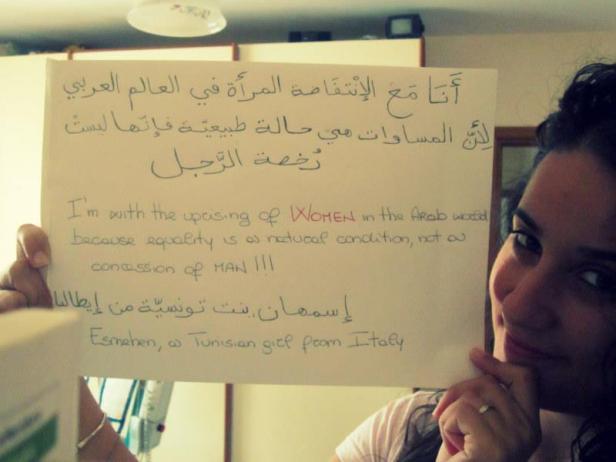 أَنَا مَعَ الإِنْتفَاضة المرأة في العالم العربي
لِأَنَّ المساوات هي حالة طبيعيّة فإنّها ليستْ
رُخصة الرَّجل
I'm with the uprising of WOMEN in the Arab world
because equality is a natural condition, not a
concession of MAN !!!
إسمهان، بنت تونسيّة من إيطاليا
Esmehen, a Tunisian girl from Italy